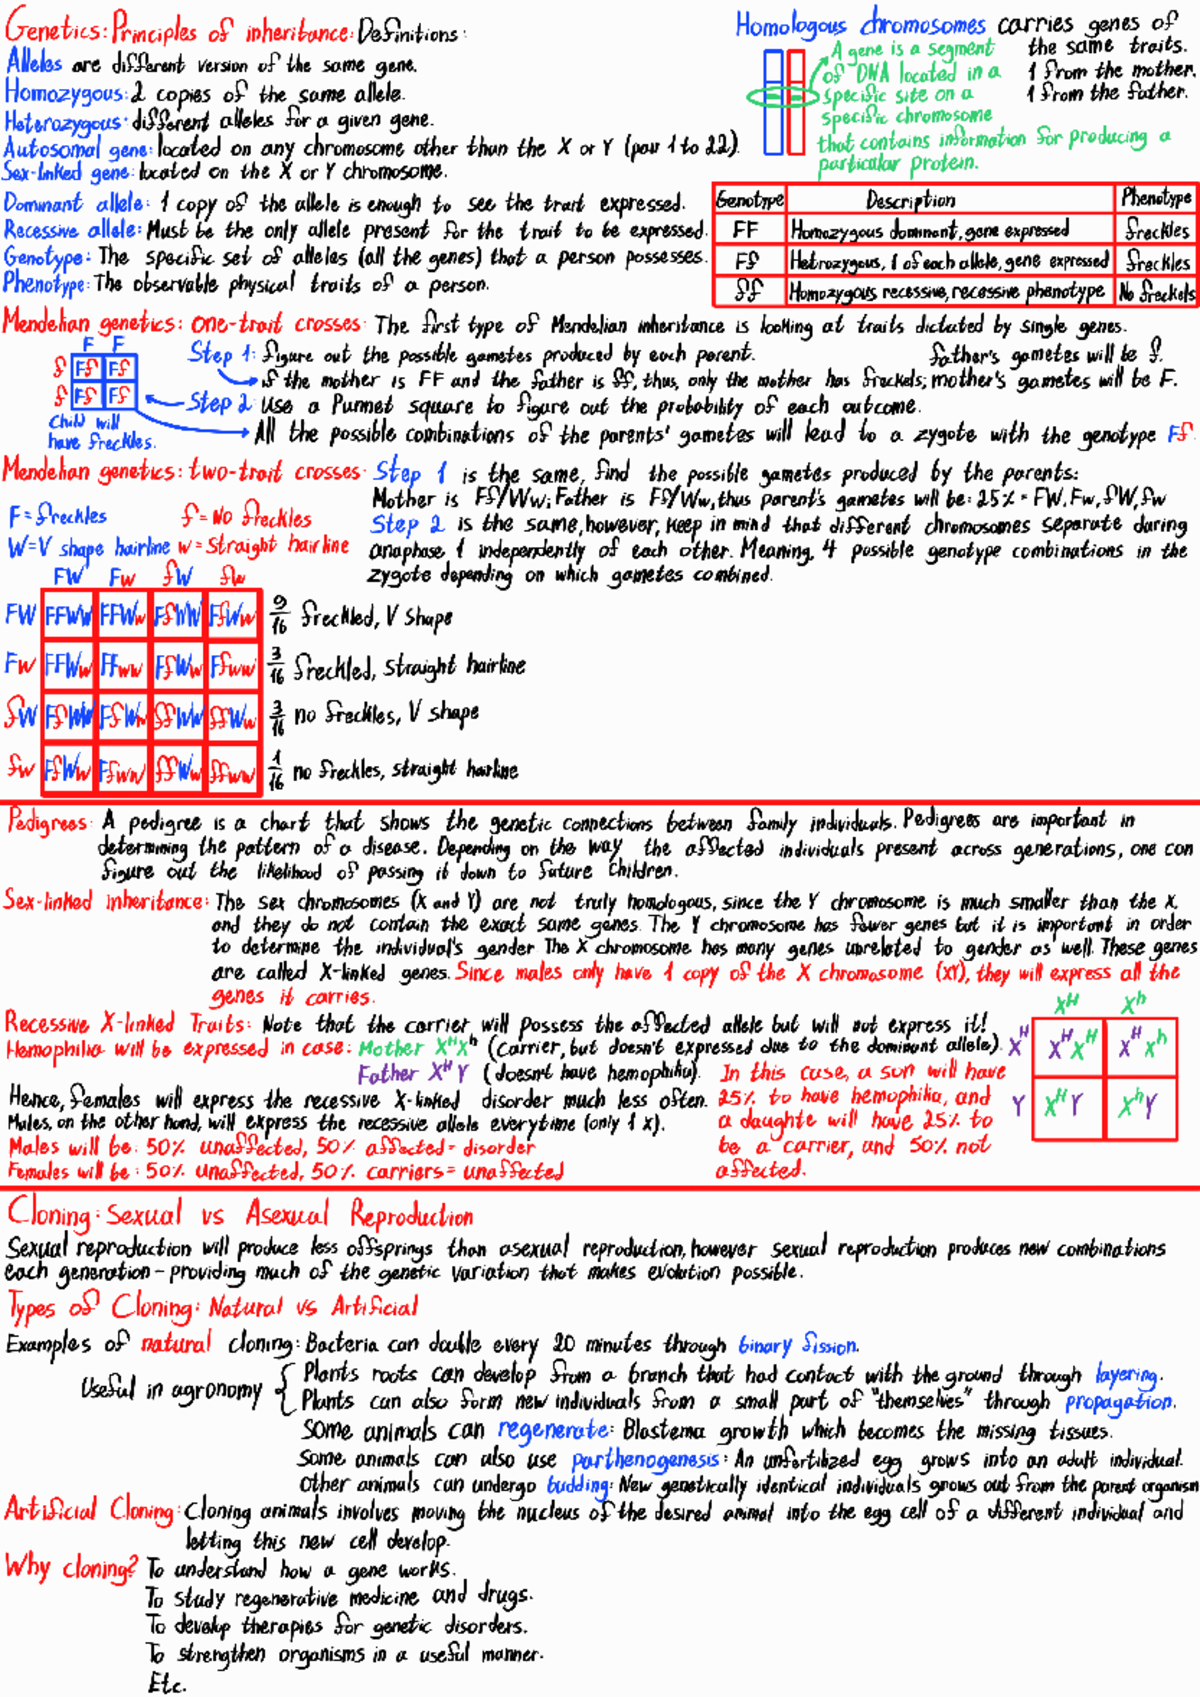 Genetics: Principles of inheritance: Definitions:
Alleles are different version of the same gene.
Homozygous: 2 copies of the same allele.
Heterozygous: different alleles for a given gene.
Autosomal gene: located on any chromosome other than the X or Y (pair 1 to 22).
Sex-linked gene: located on the X or Y chromosome.
Dominant allele: 1 copy of the allele is enough to see the trait expressed.
Recessive allele: Must be the only allele present for the trait to be expressed.
Genotype: The specific set of alleles (all the genes) that a person possesses.
Phenotype: The observable physical traits of a person.
Homologous chromosomes carries genes of
the same traits.
1 from the mother.
1 from the father.
A gene is a segment
of DNA located in a
specific site on a
specific chromosome
that contains information for producing a
particular protein.
Genotype Description Phenotype
FF Homozygous dominant, gene expressed freckles
Ff Hetrozygous, 1 of each allele, gene expressed freckles
ff Homozygous recessive, recessive phenotype No freckels
Mendelian genetics: one-trait crosses: The first type of Mendelian inheritance is looking at traits dictated by single genes.
F F
f Ff Ff
f Ff Ff
Child will
have freckles.
Step 1: figure out the possible gametes produced by each parent. father's gametes will be f.
if the mother is FF and the father is ff, thus, only the mother has freckels; mother's gametes will be F.
Step 2: Use a Punnet square to figure out the probability of each outcome.
All the possible combinations of the parents' gametes will lead to a zygote with the genotype Ff.
Mendelian genetics: two-trait crosses: Step 1 is the same, find the possible gametes produced by the parents:
Mother is Ff/Ww; Father is Ff/Ww, thus parent's gametes will be: 25% = FW, Fw, fW, fw
Step 2 is the same, however, keep in mind that different chromosomes separate during
anaphase 1 independently of each other. Meaning, 4 possible genotype combinations in the
zygote depending on which gametes combined.
F = freckles f = No freckles
W = V shape hairline w = Straight hairline
FW Fw fW fw
FW FFWW FFWw FfWW FfWw 9/16 freckled, V shape
Fw FFWw FFww FfWw Ffww 3/16 freckled, straight hairline
fW FfWW FfWw ffWW ffWw 3/16 no freckles, V shape
fw FfWw Ffww ffWw ffww 1/16 no freckles, straight hairline
Pedigrees: A pedigree is a chart that shows the genetic connections between family individuals. Pedigrees are important in
determining the pattern of a disease. Depending on the way the affected individuals present across generations, one can
figure out the likelihood of passing it down to future children.
Sex-linked inheritance: The sex chromosomes (X and Y) are not truly homologous, since the Y chromosome is much smaller than the X,
and they do not contain the exact same genes. The Y chromosome has fewer genes but it is important in order
to determine the individual's gender. The X chromosome has many genes unrelated to gender as well. These genes
are called X-linked genes. Since males only have 1 copy of the X chromosome (XY), they will express all the
genes it carries.
Recessive X-linked Traits: Note that the carrier will possess the affected allele but will not express it!
Hemophilia will be expressed in case: Mother XᴴXʰ (carrier, but doesn't expressed due to the dominant allele).
Father XᴴY (doesn't have hemophilia).
Hence, females will express the recessive X-linked disorder much less often.
Males, on the other hand, will express the recessive allele everytime (only 1 X).
Males will be: 50% unaffected, 50% affected = disorder
Females will be: 50% unaffected, 50% carriers = unaffected
In this case, a son will have
25% to have hemophilia, and
a daughte will have 25% to
be a carrier, and 50% not
affected.
Xᴴ Xʰ
Xᴴ XᴴXᴴ XᴴXʰ
Y XᴴY XʰY
Cloning: Sexual vs Asexual Reproduction
Sexual reproduction will produce less offsprings than asexual reproduction, however sexual reproduction produces new combinations
each generation - providing much of the genetic variation that makes evolution possible.
Types of Cloning: Natural vs Artificial
Examples of natural cloning: Bacteria can double every 20 minutes through binary fission.
Useful in agronomy { Plants roots can develop from a branch that had contact with the ground through layering.
Plants can also form new individuals from a small part of "themselves" through propagation.
Some animals can regenerate: Blastema growth which becomes the missing tissues.
Some animals can also use parthenogenesis: An unfertilized egg grows into an adult individual.
Other animals can undergo budding: New genetically identical individuals grows out from the parent organism
Artificial Cloning: Cloning animals involves moving the nucleus of the desired animal into the egg cell of a different individual and
letting this new cell develop.
Why cloning? To understand how a gene works.
To study regenerative medicine and drugs.
To develop therapies for genetic disorders.
To strengthen organisms in a useful manner.
Etc.